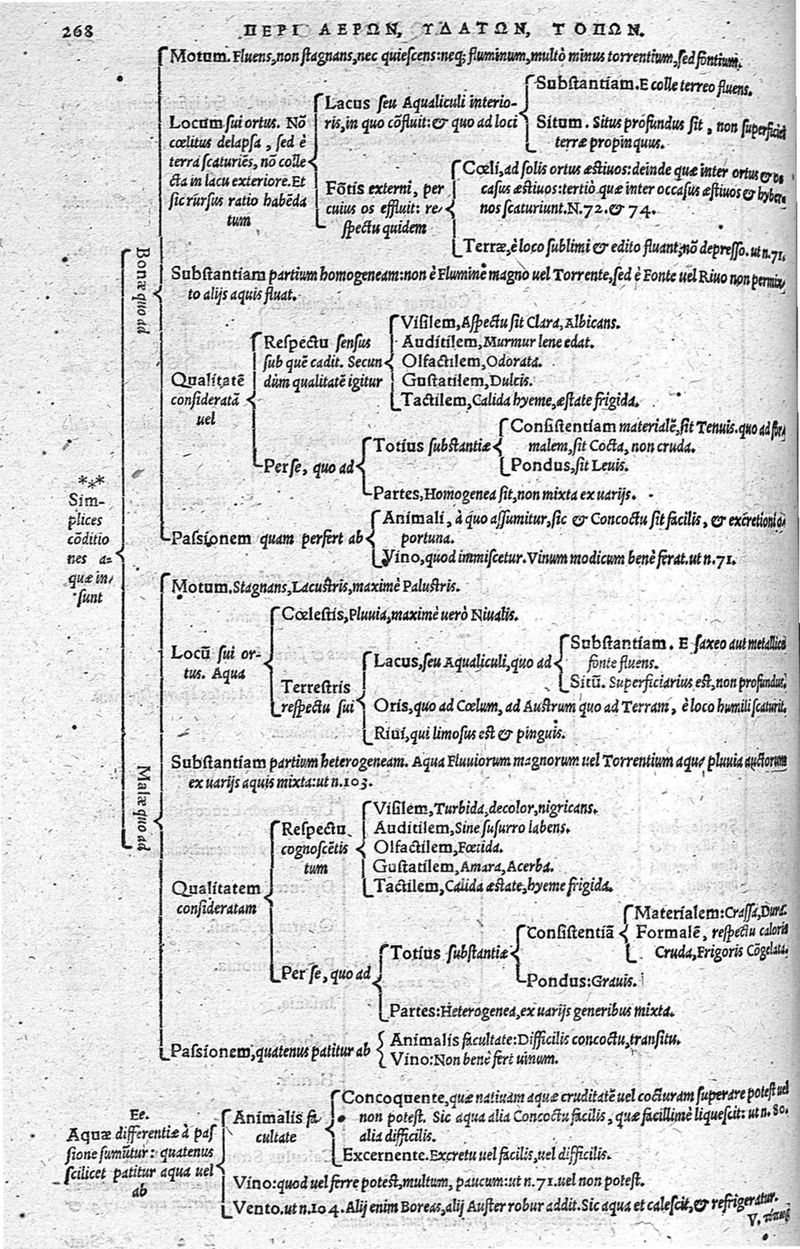 268 ΠΕΡΙ ΑΕΡΩΝ, ΥΔΑΤΩΝ, ΤΟΠΩΝ.
Motum. Fluens, non stagnans, nec quiescens: neq; fluminum, multò minus torrentium, sed fontium.
Locum sui ortus. Nō
cœlitus delapsa, sed è
terra scaturiēs, nō colle
cta in lacu exteriore. Et
sic rursus ratio habēda
tum
Lacus seu Aqualiculi interio-
ris, in quo cōfluit: & quo ad loci
Substantiam. E colle terreo fluens.
Situm. Situs profundus sit, non superficiei
terræ propinquus.
Fōtis externi, per
cuius os effluit: re-
spectu quidem
Cœli, ad solis ortus æstiuos: deinde quæ inter ortus & oc
casus æstiuos: tertiò quæ inter occasus æstiuos & hyber
nos scaturiunt. N. 72. & 74.
Terræ, è loco sublimi & edito fluant, nō depresso. ut n. 71.
Bonæ quo ad
Substantiam partium homogeneam: non è Flumine magno uel Torrente, sed è Fonte uel Riuo non permix
to alijs aquis fluat.
Qualitatē
consideratā
uel
Respectu sensus
sub quē cadit. Secun
dùm qualitatē igitur
Visilem, Aspectu sit Clara, Albicans.
Auditilem, Murmur lene edat.
Olfactilem, Odorata.
Gustatilem, Dulcis.
Tactilem, Calida hyeme, æstate frigida.
Per se, quo ad
Totius substantiæ
Consistentiam materialē, sit Tenuis. quo ad for
malem, sit Cocta, non cruda.
Pondus, sit Leuis.
Partes, Homogenea sit, non mixta ex uarijs.
Passionem quam perfert ab
Animali, à quo assumitur, sic & Concoctu sit facilis, & excretioni o
portuna.
Vino, quod immiscetur. Vinum modicum benè ferat. ut n. 71.
***
Sim-
plices
cōditio
nes a-
quæ in-
sunt
Motum. Stagnans, Lacustris, maximè Palustris.
Locū sui or-
tus. Aqua
Cœlestis, Pluuia, maximè uerò Niualis.
Terrestris
respectu sui
Lacus, seu Aqualiculi, quo ad
Substantiam. E saxeo aut metallico
fonte fluens.
Sitū. Superficiarius est, non profundus.
Oris, quo ad Cœlum, ad Austrum quo ad Terram, è loco humili scaturit.
Riui, qui limosus est & pinguis.
Malæ quo ad
Substantiam partium heterogeneam. Aqua Fluuiorum magnorum uel Torrentium aqua pluuia auctorum
ex uarijs aquis mixta: ut n. 103.
Qualitatem
consideratam
Respectu
cognoscētis
tum
Visilem, Turbida, decolor, nigricans.
Auditilem, Sine susurro labens.
Olfactilem, Fœtida.
Gustatilem, Amara, Acerba.
Tactilem, Calida æstate, hyeme frigida.
Per se, quo ad
Totius substantiæ
Consistentiā
Materialem: Crassa, Dura.
Formalē, respectu caloris
Cruda, Frigoris Cōgelata.
Pondus: Grauis.
Partes: Heterogenea, ex uarijs generibus mixta.
Passionem, quatenus patitur ab
Animalis facultate: Difficilis concoctu, transitu.
Vino: Non benè fert uinum.
Ee.
Aquæ differentiæ à pas
sione sumūtur: quatenus
scilicet patitur aqua uel
ab
Animalis fa
cultate
Concoquente, quæ natiuam aquæ cruditatē uel cocturam superare potest uel
non potest. Sic aqua alia Concoctu facilis, quæ facillimè liquescit: ut n. 80.
alia difficilis.
Excernente. Excretu uel facilis, uel difficilis.
Vino: quod uel ferre potest, multum, paucum: ut n. 71. uel non potest.
Vento. ut n. 104. Alij enim Boreas, alij Auster robur addit. Sic aqua et calescit, & refrigeratur.
V.